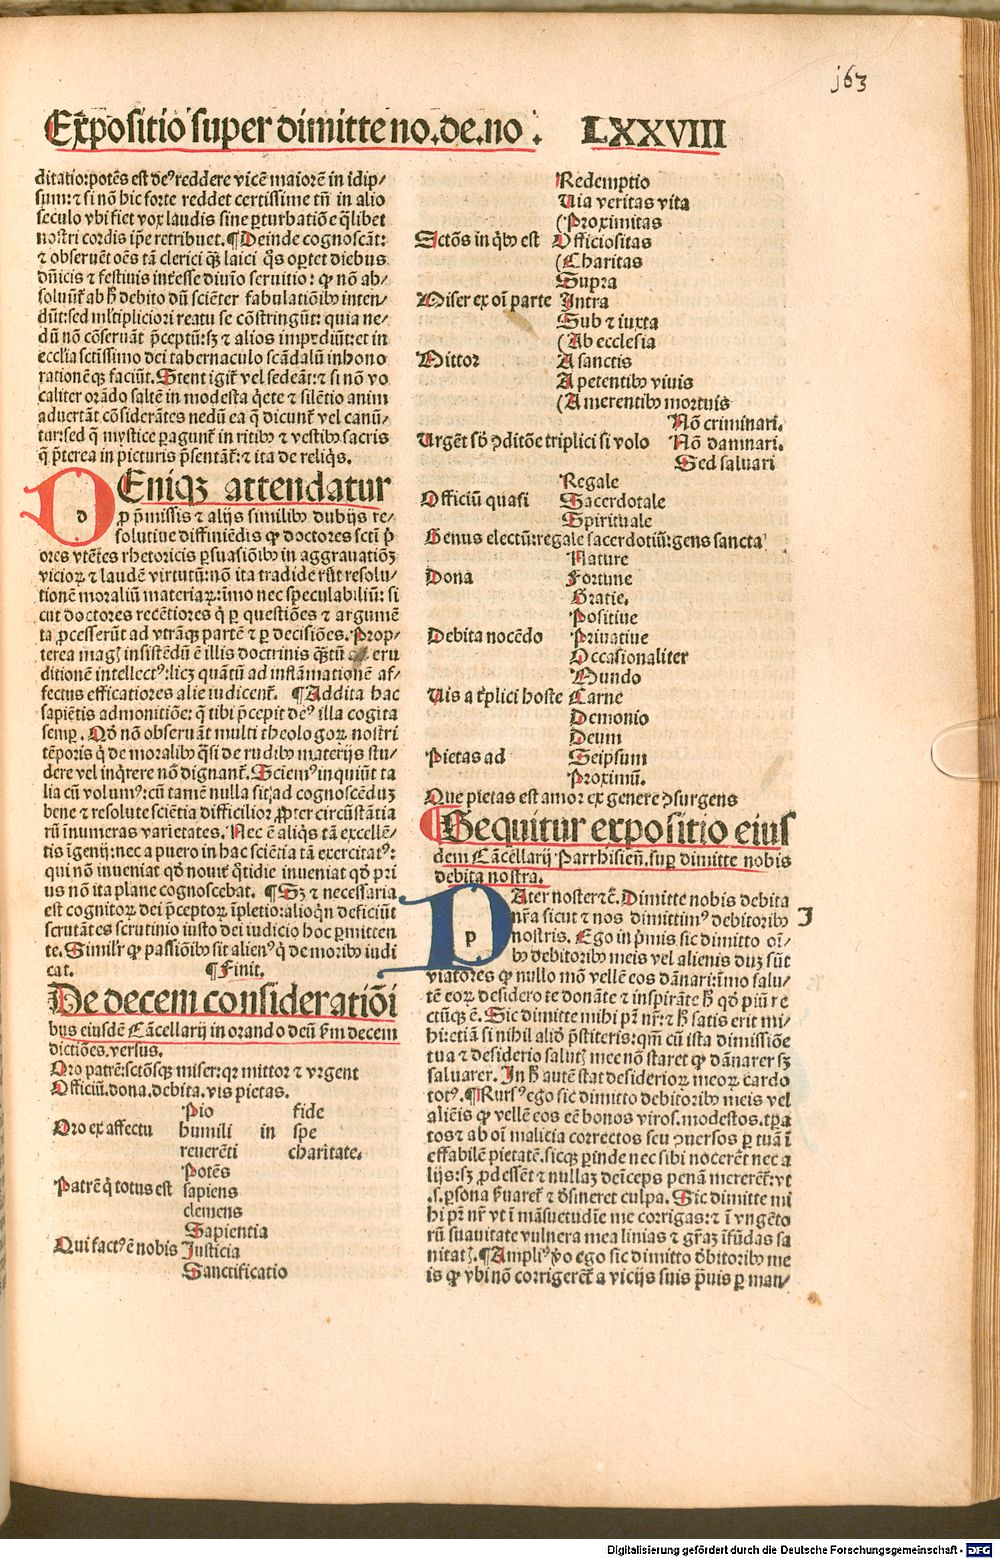 j63
Expositio super dimitte no.de.no. LXXVIII
ditatio:potēs est deꝰ reddere vicē maiorē in idip/
sum:⁊ si nō hic forte reddet certissime tn̄ in alio
seculo vbi fiet vox laudis sine ꝑturbatiōe q̄libet
nostri cordis ip̄e retribuet. ¶ Deinde cognoscāt:
⁊ obseruēt oēs tā clerici qꝫ laici q̄s oꝑtet diebus
dn̄icis ⁊ festiuis intēsse diuīo seruitio: qꝛ nō ab/
soluūt᷑ ab h̄ debito dū sciēter fabulatiōibꝰ inten/
dūt:sed ml̄tipliciori reatu se cōstringūt: quia ne/
dū nō cōseruāt p̄ceptū:sꝫ ⁊ alios impediūt:et in
eccl̄ia sctīssimo dei tabernaculo scādalū inhono
rationēqꝫ faciūt. Stent igit᷑ vel sedeāt:⁊ si nō vo
caliter orādo saltē in modesta q̄ete ⁊ silētio anim
aduertāt cōsiderātes nedū ea q̄ dicunt᷑ vel canū/
tur:sed q̄ mystice ꝑagunt᷑ in ritibꝰ ⁊ vestibꝰ sacris
q̄ p̄terea in picturis p̄sentāt᷑:⁊ ita de reliq̄s.
DEniqꝫ attendatur
ꝓ p̄missis ⁊ alijs similibꝰ dubijs re/
solutiue diffiniēdis qꝙ doctores sctī p̄
ores vtētes rhetoricis ꝑsuasiōibꝰ in aggrauatiōꝫ
vicioꝝ ⁊ laudē virtutū:nō ita tradiderūt resolu/
tionē moraliū materiaꝝ:īmo nec speculabiliū: si
cut doctores recētiores q̄ ꝑ questiōes ⁊ argumē
ta ꝓcesserūt ad vtrāqꝫ partē ⁊ ꝑ decisiōes. Prop/
terea magꝭ insistēdū ē illis doctrinis q̄stū ad eru
ditionē intellectꝰ:licꝫ quātū ad inflāmationē af/
fectus efficatiores alie iudicent᷑. ¶ Addita hac
sapiētis admonitiōe: q̄ tibi p̄cepit deꝰ illa cogita
semꝑ. Qō nō obseruāt multi theologoꝝ nostri
tēporis q̄ de moralibꝰ q̄si de rudibꝰ materijs stu/
dere vel inq̄rere nō dignant᷑. Sciemꝰ inquiūt ta
lia cū volumꝰ:cū tamē nulla sit ad cognoscēduꝫ
bene ⁊ resolute sciētia difficilior ꝓpter circūstātia
rū īnumeras varietates. Nec ē aliq̄s tā excellē/
tis īgenij:nec a puero in hac sciētia tā exercitatꝰ:
qui nō inueniat qd̄ nouit q̄tidie inueniat qd̄ pri
us nō ita plane cognoscebat. ¶ Sꝫ ⁊ necessaria
est cognitoꝝ dei p̄ceptoꝝ īpletio:alioq̄n deficiūt
scrutātes scrutinio iusto dei iudicio hoc ꝑmitten
te. Simil̄r qꝙ passiōibꝰ sit alienꝰ q̄ de moribꝰ iudi
cat. ¶ Finit.
De decem consideratiōi
bus eiusdē Cācellarij in orando deū ẜm decem
dictiōes.versus.
Oro patrē:sctōsqꝫ miser:qꝛ mittor ⁊ vrgent
Officiū.dona.debita.vis pietas.
Pio fide
Oro ex affectu humili in spe
reuerēti charitate.
Potēs
Patrē q̄ totus est sapiens
clemens
Sapientia
Qui factꝰ ē nobis Justicia
Sanctificatio
Redemptio
Uia veritas vita
(Proximitas
Sctōs in q̄bꝰ est Officiositas
(Charitas
Supra
Miser ex oī parte Intra
Sub ⁊ iuxta
(Ab ecclesia
Mittor A sanctis
A petentibꝰ viuis
(A merentibꝰ mortuis
Nō criminari.
Urgēt sb̄ ꝯditōe triplici si volo Nō damnari.
Sed saluari
Regale
Officiū quasi Sacerdotale
Spirituale
Genus electū:regale sacerdotiū:gens sancta
Nature
Dona Fortune
Gratie.
Positiue
Debita nocēdo Priuatiue
Occasionaliter
Mundo
Uis a tp̄lici hoste Carne
Demonio
Deum
Pietas ad Seipsum
Proximū.
Que pietas est amor ex genere ꝯsurgens
¶ Sequitur expositio eius
dem Cācellarij Parrhisieñ.suꝑ dimitte nobis
debita nostra.
PAter noster ⁊c̄. Dimitte nobis debita
nr̄a sicut ⁊ nos dimittimꝰ debitoribꝰ J
nostris. Ego in p̄mis sic dimitto oī/
bꝰ debitoribꝰ meis vel alienis duꝫ sūt
viatores qꝙ nullo mō vellē eos dānari:īmo salu/
tē eoꝝ desidero te donāte ⁊ inspirāte h̄ qd̄ piū re
ctūqꝫ ē. Sic dimitte mihi pr̄ nr̄:⁊ h̄ satis erit mi/
hi:etiā si nihil aliō p̄stiteris:qm̄ cū ista dimissiōe
tua ⁊ desiderio salutꝭ mee nō staret qꝙ dānarer sꝫ
saluarer. In h̄ autē stat desiderioꝝ meoꝝ cardo
totꝰ. ¶ Rursꝰ ego sic dimitto debitoribꝰ meis vel
aliēis qꝙ vellē eos eē bonos viros.modestos.tꝑa
tos ⁊ ab oī malicia correctos seu ꝯuersos ꝑ tuā ī
effabilē pietatē.sicqꝫ ꝑinde nec sibi nocerēt nec a
lijs:sꝫ ꝓdessēt ⁊ nullaꝫ deīceps penā mererēt᷑:vt
.s.ꝑsona ẜuaret᷑ ⁊ d̄sineret culpa. Sic dimitte mi
hi pr̄ nr̄ vt ī māsuetudīe me corrigas:⁊ ī vngēto
rū suauitate vulnera mea linias ⁊ gr̄aꝫ īfūdas sa
nitatꝭ. ¶ Ampliꝰ ꝟo ego sic dimitto d̄bitoribꝰ me
is qꝙ vbi nō corrigerēt᷑ a vicijs suis p̄uis ꝑ man/
Digitalisierung gefördert durch die Deutsche Forschungsgemeinschaft - DFG